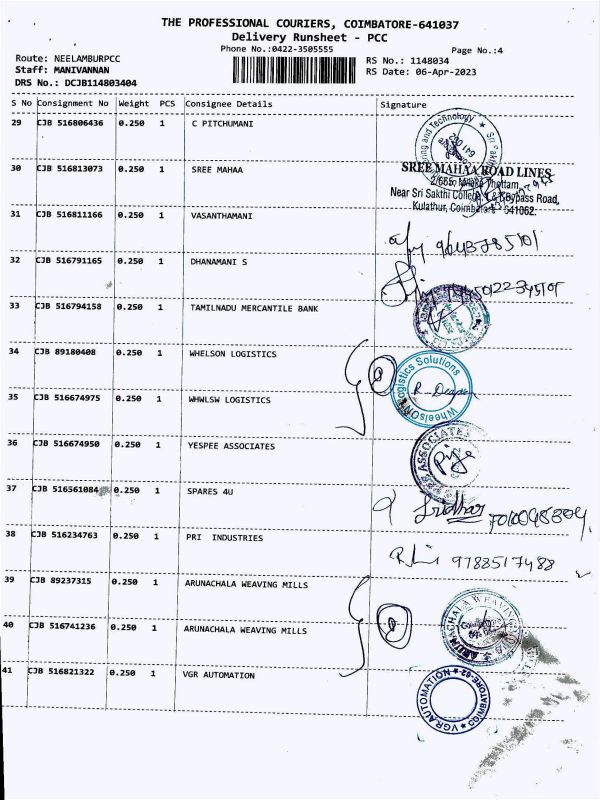 THE PROFESSIONAL COURIERS, COIMBATORE-641037
Delivery Runsheet - PCC
Phone No.:0422-3505555
Page No.:4
Route: NEELAMBURPCC
RS No.: 1148034
Staff: MANIVANNAN
RS Date: 06-Apr-2023
DRS No.: DCJB114803404
S No Consignment No Weight PCS Consignee Details Signature
29 CJB 516806436 0.250 1 C PITCHUMANI
30 CJB 516813073 0.250 1 SREE MAHAA
SREE MAHAA ROAD LINES
Thottam,
Near Sri Sakthi College, L&T Bypass Road,
Kulathur, Coimbatore - 641062.
31 CJB 516811166 0.250 1 VASANTHAMANI
32 CJB 516791165 0.250 1 DHANAMANI S
33 CJB 516794158 0.250 1 TAMILNADU MERCANTILE BANK
34 CJB 89180408 0.250 1 WHELSON LOGISTICS
Wheelson Logistics Solutions
35 CJB 516674975 0.250 1 WHWLSW LOGISTICS
36 CJB 516674950 0.250 1 YESPEE ASSOCIATES
ASSOCIATES
37 CJB 516561084 0.250 1 SPARES 4U
Sridhar
38 CJB 516234763 0.250 1 PRI INDUSTRIES
9788517488
39 CJB 89237315 0.250 1 ARUNACHALA WEAVING MILLS
ARUNACHALA WEAVING
40 CJB 516741236 0.250 1 ARUNACHALA WEAVING MILLS
41 CJB 516821322 0.250 1 VGR AUTOMATION
VGR AUTOMATION